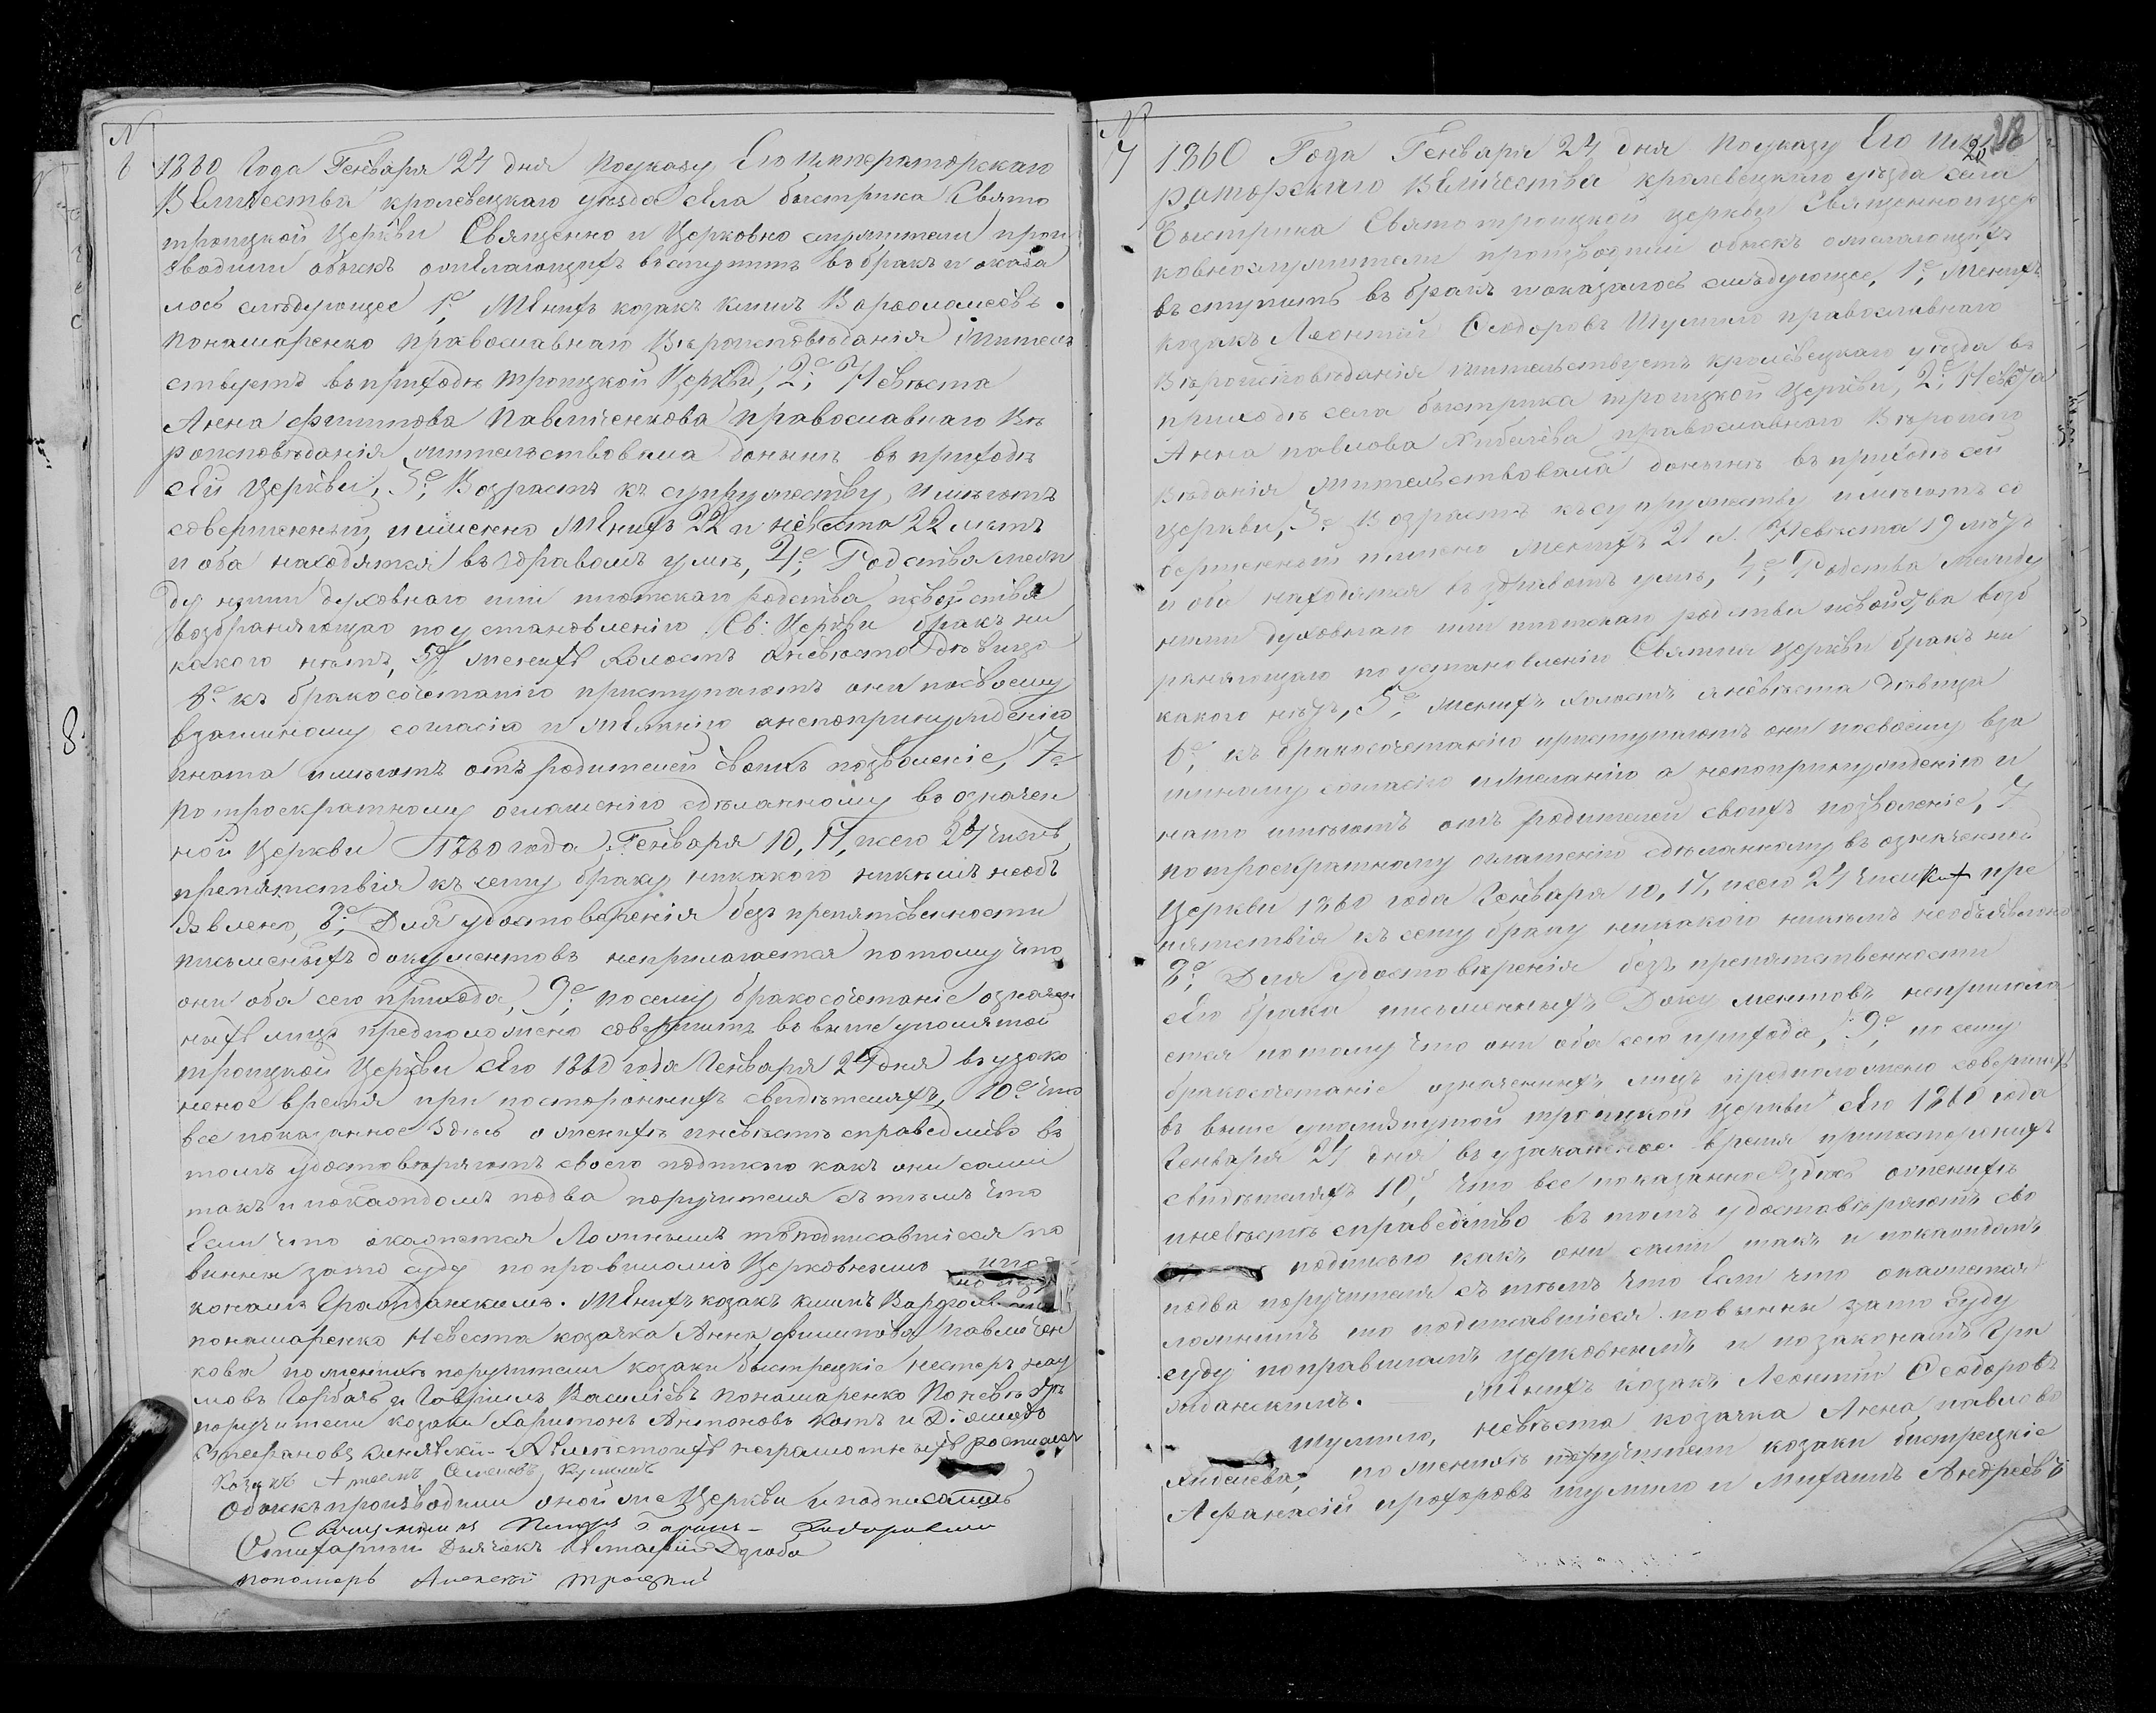 N
6
1860 Года Генваря 24 дня по указу Его Императорскаго
Величества кролевецкаго уѣзда села быстрика Свято
троицкой Церкви Священно и Церковно служители прои
зводили обыскъ о желающихъ вступить въ бракъ и оказа
лось слѣдующее 1е, Женихъ козакъ климъ Варѳоломеевъ
понамаренко православнаго Вѣроисповѣданія жител
ствуетъ въ приходѣ троицкой Церкви, 2е, Невѣста
Анна филипова Павличенкова православнаго Вѣ
роисповѣданія жителствовала донынѣ въ приходѣ
сей Церкви, 3е, Возрастъ къ супружеству имѣютъ
совершенный, и именно Женихъ 22 и невѣста 22 лѣтъ
и оба находятся въ здравомъ умѣ, 4е, Родства меж
ду ними духовнаго или плотскаго родства и свойства
возбраняющаго по установленію Св: Церкви бракъ ни
какого нѣтъ, 5е, женихъ холостъ а невѣста дѣвица
6е къ бракосочетанію приступаютъ они по своему
взаимному согласію и желанію а не по принужденію
и на то имѣютъ отъ родителей своихъ позволеніе, 7е
по троекратному оглашенію сдѣланному въ означен
ной Церкви 1860 года Генваря 10, 17, и сего 24 чиселъ
препятствія къ сему браку никакого никѣмъ не объ
явлено, 8е, Для удостоверенія безъ препятственности
письменыхъ документовъ неприлагается потому что
они оба сего прихода, 9е, по сему бракосочетаніе означен
ныхъ лицъ предположено совершить въ выше упомятой
троицкой Церкви сего 1860 года Генваря 24 дня въ узако
неное время при постороннихъ свидѣтеляхъ, 10е что
все показанное здѣсь о женихѣ и невѣстѣ справедливо въ
томъ удостовѣряютъ своею подписью какъ они сами
такъ и по каждомъ по два поручителя съ тѣмъ что
Если что окажется Ложнымъ то подписавшіеся по
винны за то суду по правиламъ Церковнымъ и по за
конамъ Гражданскимъ. Женихъ козакъ климъ Варѳоломеевъ
понамаренко Невеста козачка Анна филипова павличен
кова по женихѣ поручители козаки быстрецкіе Нестеръ нау
мовъ Горбачъ и Гавріилъ Василіевъ понамаренко По невѣстѣ
поручители козаки Харитонъ Антоновъ Котъ и
Стефановъ неграмотныхъ росписался
Козакъ Артемъ Семеновъ
Обыскъ производили оной же Церкви и подписались
Священникъ Петръ
Стихарный Дьячокъ Дзюба
пономарь Алексѣй троецкій
N
7
20
1860 Года Генваря 24 дня по указу Его Импе
раторскаго Величества кролевецкаго уѣзда села
Быстрика Свято троицкой церкви Священно и цер
ковнослужители производили обыскъ о желающихъ
вступить въ бракъ и оказалось слѣдующее, 1е, Женихъ
козакъ Леонтій Ѳеодоровъ Шумило православнаго
Вѣроисповѣданія жительствуетъ кролевецкаго уѣзда въ
приходѣ села быстрика троицкой Церкви, 2е, Невѣста
Анна павлова православнаго Вѣроиспо
вѣданія жительствовала донынѣ въ приходѣ сей
церкви, 3е Возрастъ къ супружеству имѣютъ со
вершенный и именно Женихъ 21 и Невѣста 19 лѣтъ
и оба находятся въ здравомъ умѣ, 4е, Родства между
ними духовнаго или плотскаго родства и свойства возб
раняющаго по установленію Святыя Церкви бракъ ни
какого нѣтъ, 5е, женихъ холостъ а невѣста дѣвица
6е, къ бракосочетанію приступаютъ они по своему вза
имному согласію и желанію а не по принужденію и
на то имѣютъ отъ родителей своихъ позволеніе, 7
по троекратному оглашенію сдѣланному въ означенной
Церкви 1860 года Генваря 10, 17, и сего 24 чиселъ пре
пятствія къ сему браку никакого никѣмъ необъявлено
8е, Для удостовѣренія безъ препятственности
сего брака письменныхъ Документовъ неприлага
ется потому что они оба сего прихода, 9е, по сему
бракосочетаніе означенныхъ лицъ предположено совершить
въ выше упомянутой троицкой Церкви сего 1860 года
Генваря 24 дня въ узаконенное время при постороннихъ
свидѣтеляхъ 10е, что все показанное здѣсь о женихѣ
и невѣстѣ справедливо въ томъ удостовѣряютъ сво
подписью какъ они сами такъ и по каждомъ
по два поручителя съ тѣмъ что Если что окажется
ложнымъ то подписавшіеся повинны за то суду
суду по правиламъ церковнымъ и по законамъ Гра
жданскимъ. Женихъ козакъ Леонтій Ѳеодоровъ
Шумило, невѣста козачка Анна павлова
по женихѣ поручители козаки быстрецкіе
Афанасій прохоровъ шумило и Михаилъ Андреевъ
8